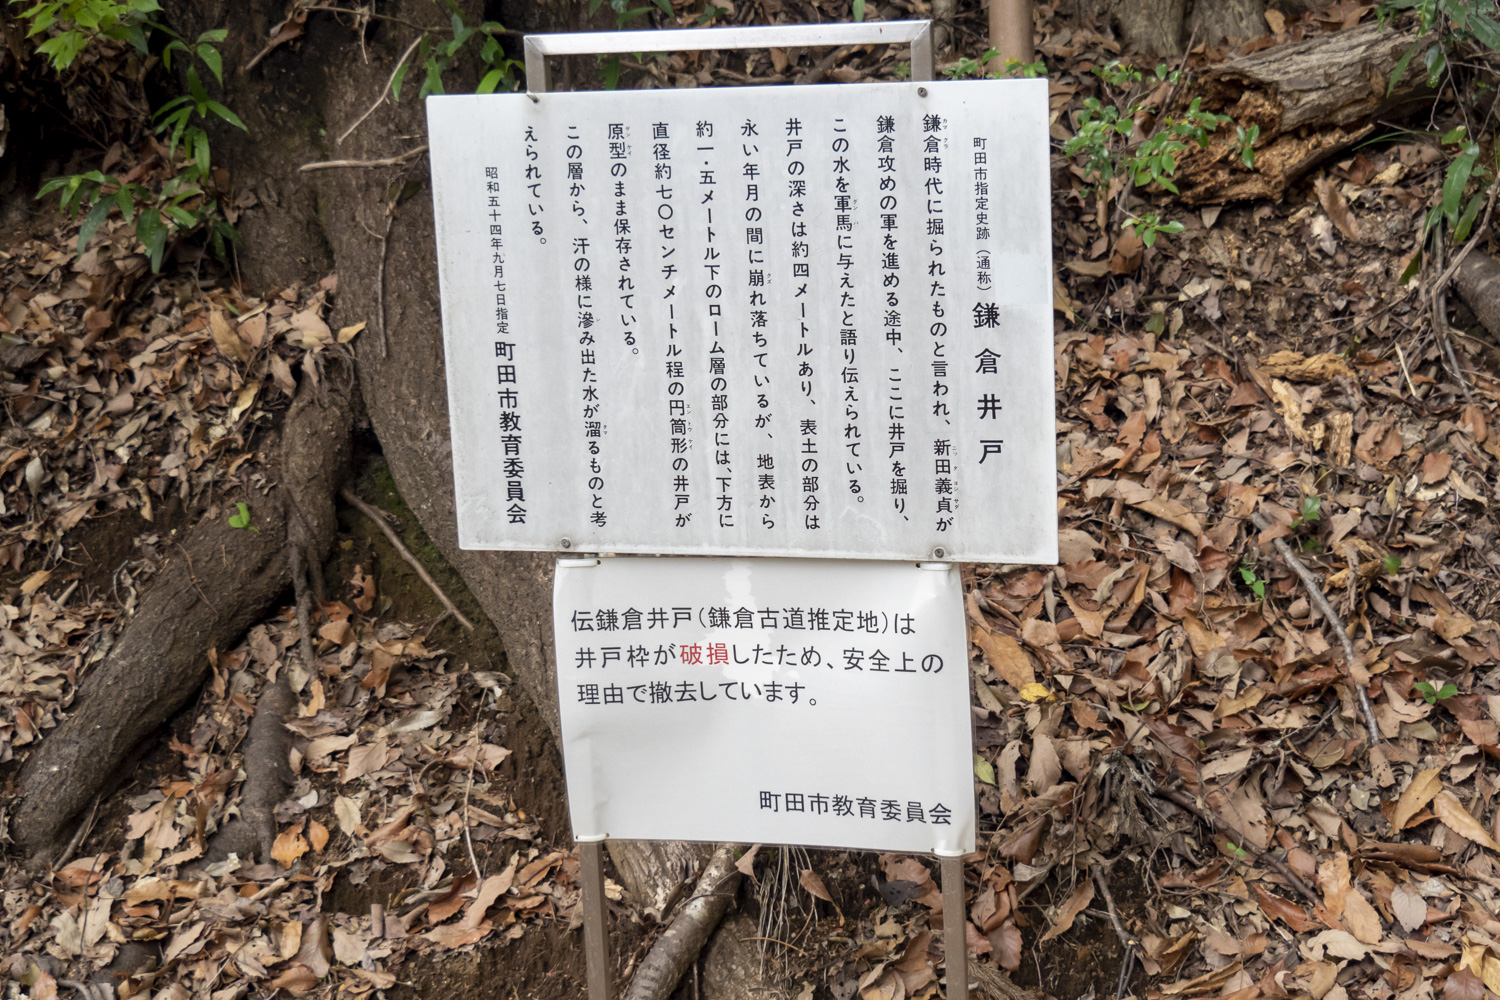 町田市指定史跡(通称)鎌倉井戸
鎌倉時代に掘られたものと言われ、新田義貞が
鎌倉攻めの軍を進める途中、ここに井戸を掘り、
この水を軍馬に与えたと語り伝えられている。
井戸の深さは約四メートルあり、表土の部分は
永い年月の間に崩れ落ちているが、地表から
約一・五メートル下のローム層の部分には、下方に
直径約七〇センチメートル程の円筒形の井戸が
原型のまま保存されている。
この層から、汗の様に滲み出た水が溜るものと考
えられている。
昭和五十四年九月七日指定 町田市教育委員会
伝鎌倉井戸(鎌倉古道推定地)は
井戸枠が破損したため、安全上の
理由で撤去しています。
町田市教育委員会